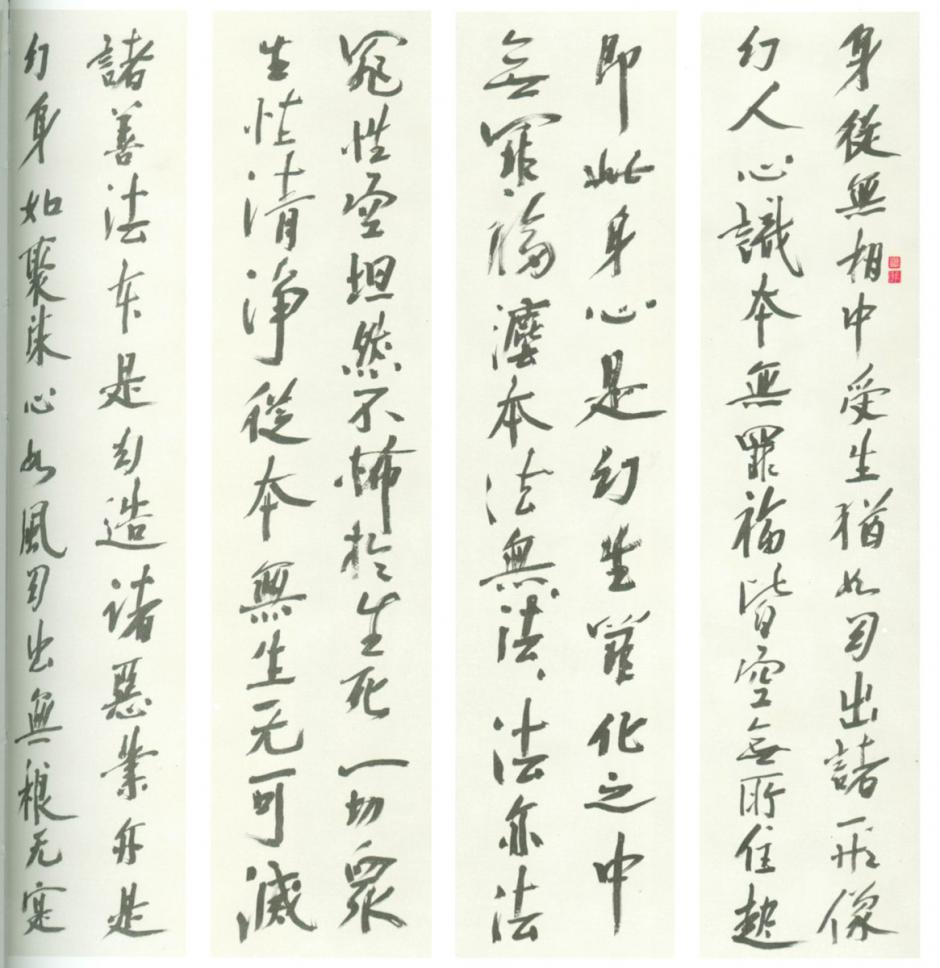 身從無相中受生猶如幻出諸形像
幻人心識本無罪福皆空無所住起
即此身心是幻生罪化之中
無罪福灋本法無法、法亦法
罪性空坦然不怖於生死一切眾
生性清淨從本無生无可滅
諸善法本是幻造諸惡業亦是
幻身如聚沫心如風幻出無根无實